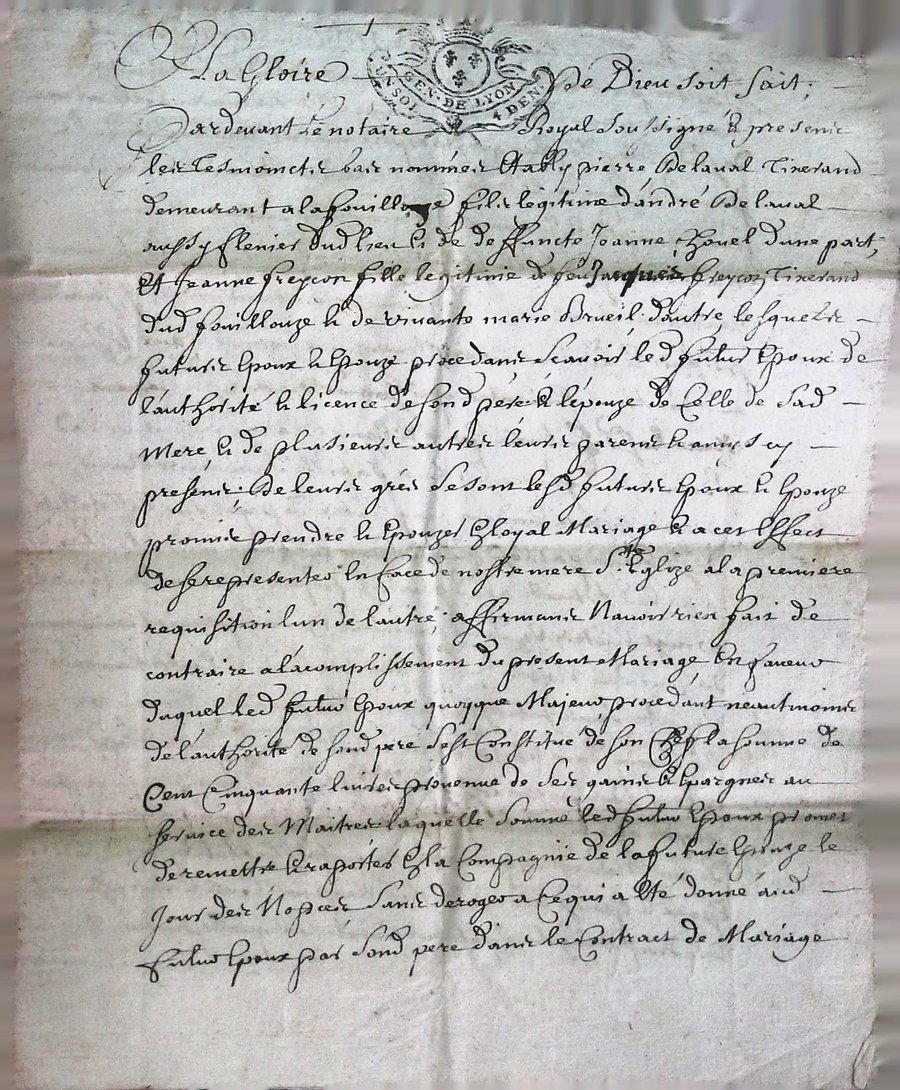 A La Gloire de Dieu soit fait;
GEN. DE LYON
UN SOL 4 DEN
Pardevant Le notaire Royal soussigné & presens
les tesmoincts bas nommés Estably pierre Delaval Tixerand
demeurant a lafouillouze fils légitime d'andré Delaval
aussy dud lieu & de deffuncte Jeanne d'une part,
Et Jeanne freycon fille legitime de feu Jacques freycon Tixerand
dud fouillouze & de vivante marie Brueil d'autre, lesquels
futurs Epoux & Epouze procedans scavoir led futur Epoux de
l'authorité & licence de sond père & l'épouze de Celle de sad
Mere, & de plusieurs autres leurs parens & amys cy
presens; De leurs grés se sont lesd futurs Epoux & Epouze
promis prendre & Epouzer En loyal Mariage & a ces Effect
de se representer En face de nostre mere Ste Eglize a la premiere
requisition lun de l'autre; affirmans N'avoir rien fait de
contraire a l'acomplissement du present Mariage, En faveur
duquel led futur Epoux quoyque Majeur procedant neantmoins
de l'authorité de sond pere s'est Constitué de son Chef la somme de
Cent Cinquante livres provenue de ses gains & Epargnes au
service des Maitres laquelle somme led futur Epoux promet
de remettre & raporter En la Compagnie de la future Epouze le
Jour des Nopces, sans deroger a Ce qui a Eté donné aud
futur Epoux par sond pere dans le Contract de Mariage